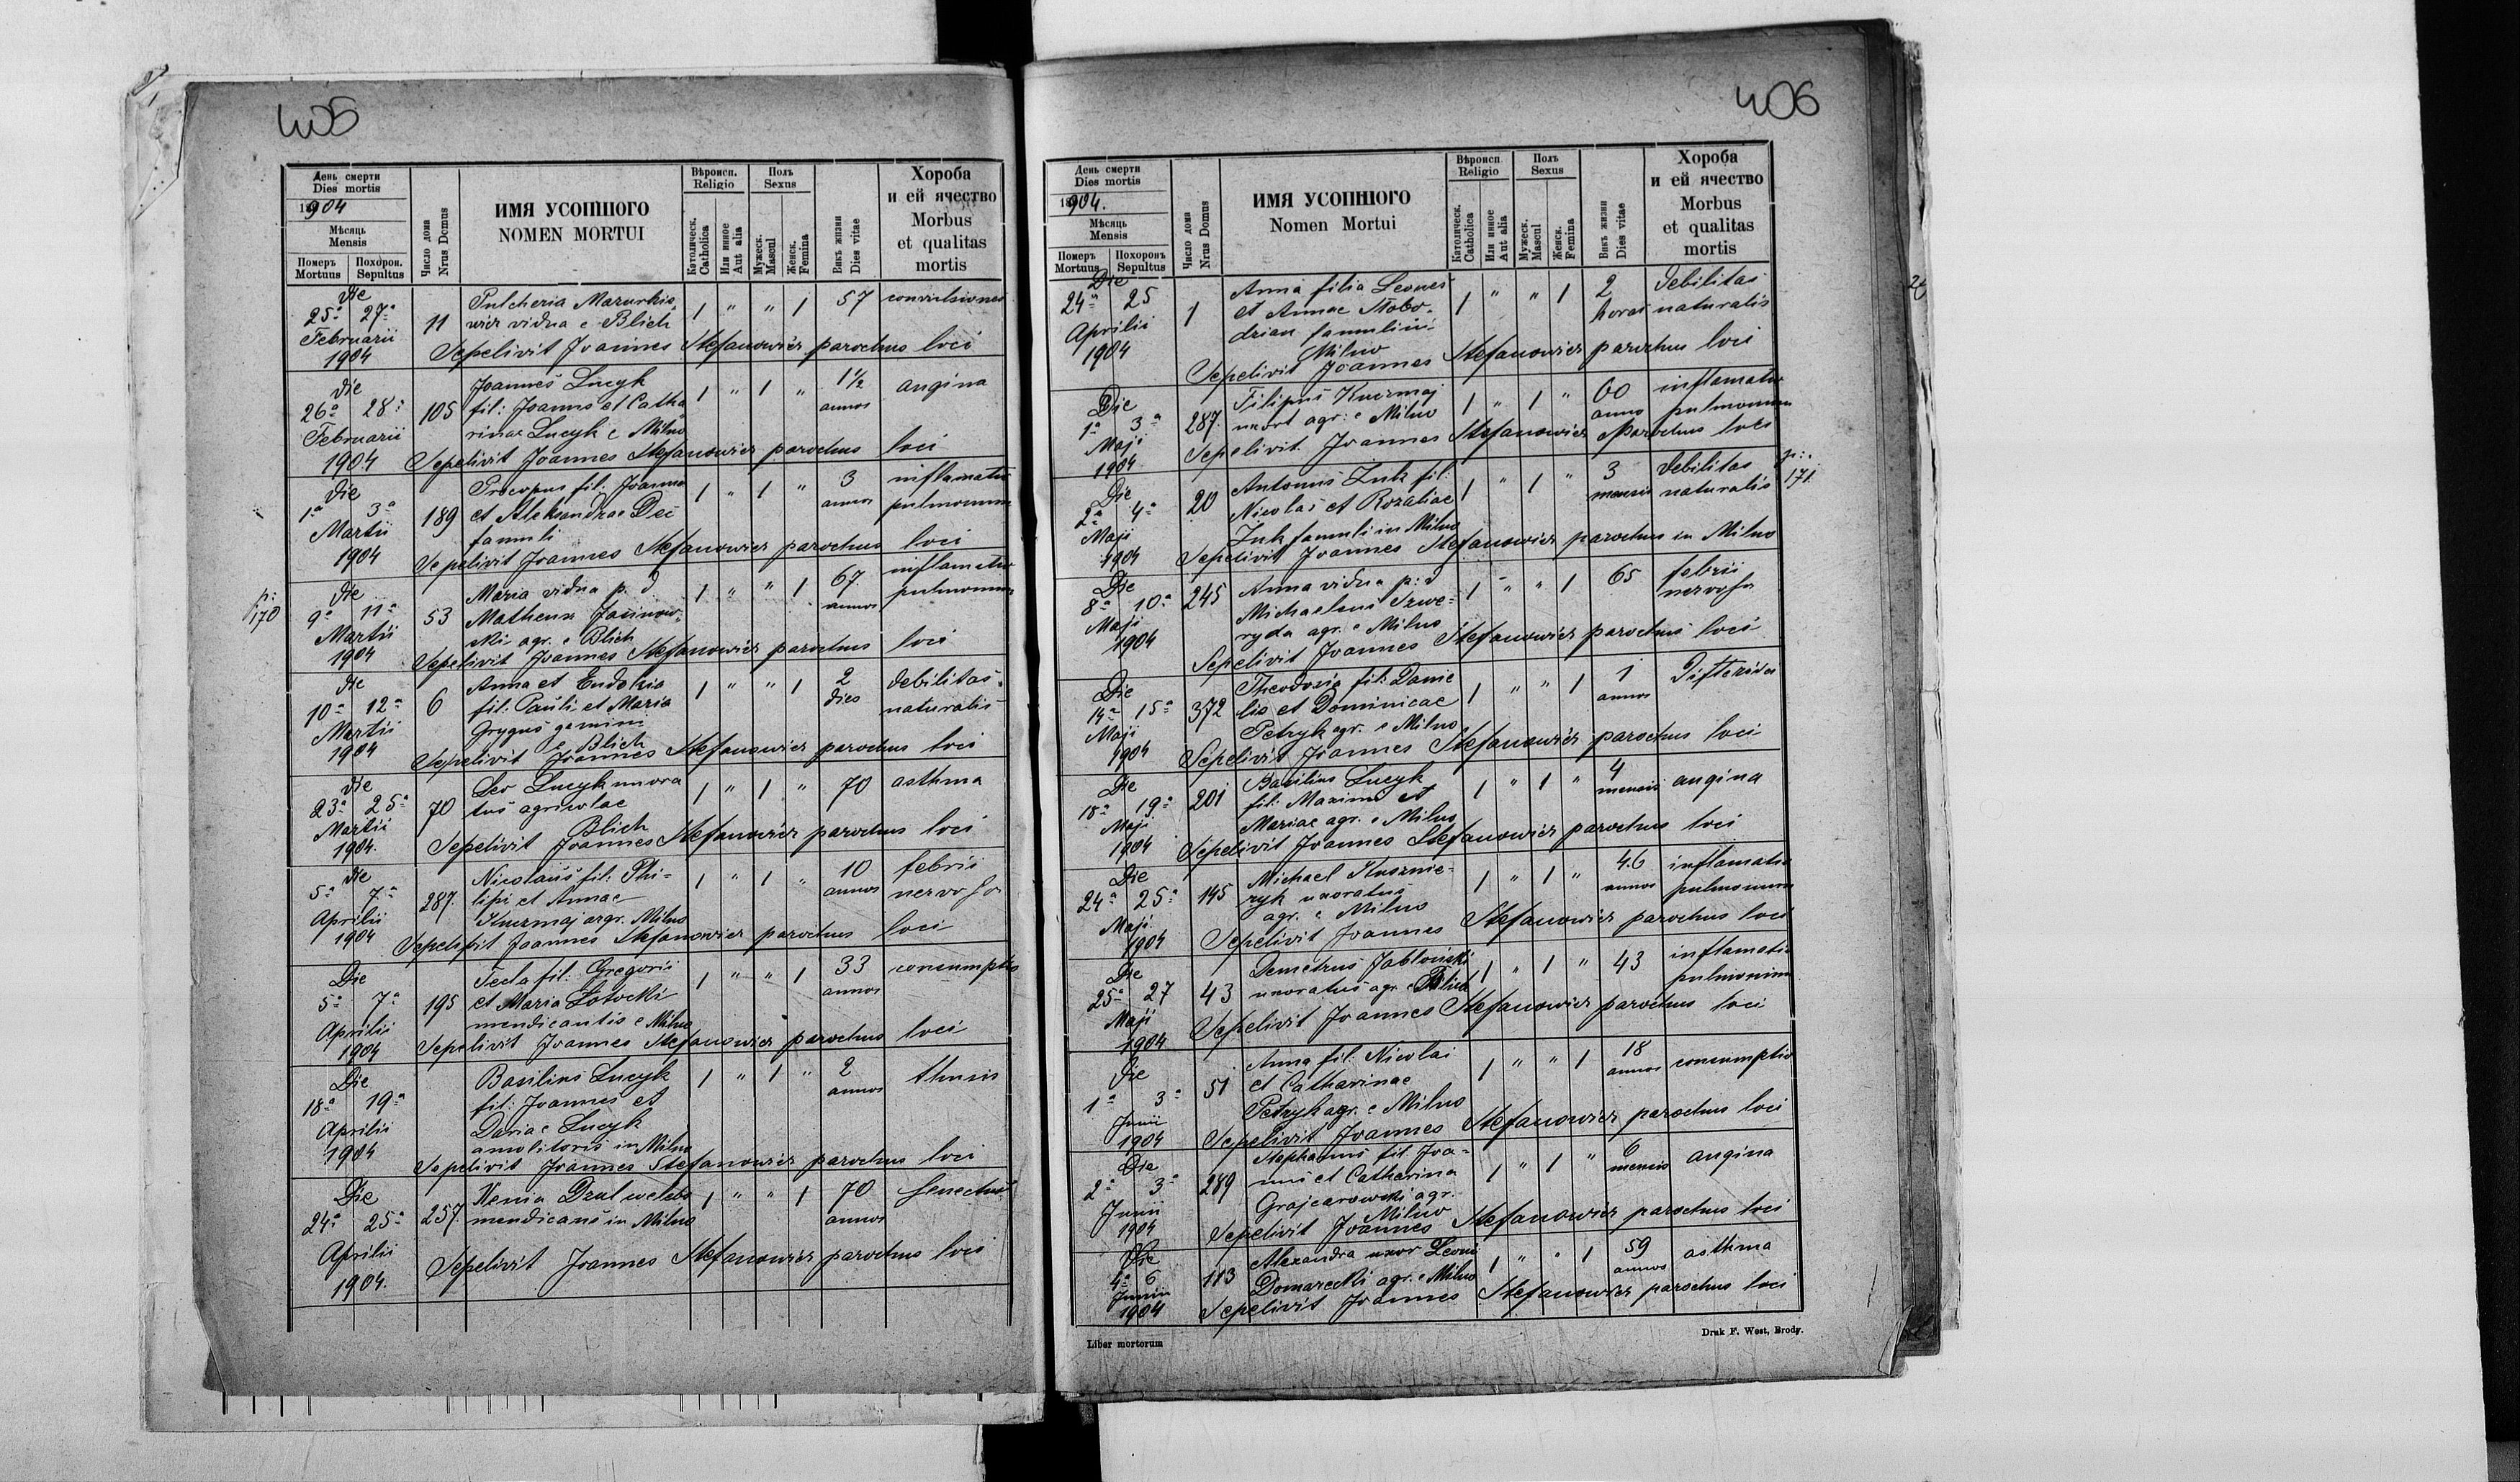 405
День смерти
Dies mortis
1904
Мѣсяць
Mensis
Померъ Похорон.
Mortuus Sepultus
Число дома
Nrus Domus
ИМЯ УСОПШОГО
NOMEN MORTUI
Вѣроисп.
Religio
Католическ.
Catholica
Или инное
Aut alia
Полъ
Sexus
Мужеск.
Mascul
Женск.
Femina
Вѣкъ жизни
Dies vitae
Хороба
и ей ячество
Morbus
et qualitas
mortis
Die
25a 27a
Februarii
1904
11
Pulcheria Mazurkie
wicz vidua e Blich
1 " " 1 57 convulsiones
Sepelivit Joannes Stefanowicz parochus loci
Die
26a 28a
Februarii
1904
105
Joannes Lucyk
fil: Joannis et Catha
rinae Lucyk e Milno
1 " 1 " 1½ annos angina
Sepelivit Joannes Stefanowicz parochus loci
Die
1a 3a
Martii
1904
189
Procopus fil: Joannis
et Aleksandrae Dec
famuli
1 " 1 " 3 annos inflamatio
pulmonum
Sepelivit Joannes Stefanowicz parochus loci
p:
170
Die
9a 11a
Martii
1904
53
Maria vidua p. d
Matheus Jasinow-
ski agr. e Blich
1 " " 1 67 annos inflamatio
pulmonum
Sepelivit Joannes Stefanowicz parochus loci
Die
10a 12a
Martii
1904
6
Anna et Eudokia
fil: Pauli et Maria
Gryguś gemini
e Blich
1 " " 1 2 dies debilitas
naturalis
Sepelivit Joannes Stefanowicz parochus loci
Die
23a 25a
Martii
1904.
70
Leo Lucyk uxora
tus agricolae
Blich
1 " 1 " 70 asthma
Sepelivit Joannes Stefanowicz parochus loci
Die
5a 7a
Aprilii
1904
287.
Nicolaus fil: Phi-
lipi et Annae
Kuczmaj agr. Milno
1 " 1 " 10 annos febris
nervosa
Sepelivit Joannes Stefanowicz parochus loci
Die
5a 7a
Aprilii
1904
195
Tecla fil: Gregorii
et Maria Lotocki
mendicantis e Milno
1 " " 1 33 annos consumptio
Sepelivit Joannes Stefanowicz parochus loci
Die
18a 19a
Aprilii
1904
Basilius Lucyk
fil: Joannes et
Dariae Lucyk
in Milno
1 " 1 " 2 annos
Sepelivit Joannes Stefanowicz parochus loci
Die
24a 25a
Aprilii
1904.
257.
Xenia
mendicans in Milno
1 " " 1 70 annos senectus
Sepelivit Joannes Stefanowicz parochus loci
406
День смерти
Dies mortis
1904.
Мѣсяць
Mensis
Померъ Похоронъ
Mortuus Sepultus
Число дома
Nrus Domus
ИМЯ УСОПШОГО
Nomen Mortui
Вѣроисп
Religio
Католическ.
Catholica
Или инное
Aut alia
Полъ
Sexus
Мужеск.
Mascul
Женск.
Femina
Вѣкъ жизни
Dies vitae
Хороба
и ей ячество
Morbus
et qualitas
mortis
Die
24a 25
Aprilii
1904
1
Anna filia Leones
et Annae Slobo-
dzian famulini
Milno
1 " " 1 2 horas Debilitas
naturalis
Sepelivit Joannes Stefanowicz parochus loci
Die
1a 3a
Maji
1904
287.
Filipus Kuczmaj
uxort agr: e Milno
1 " 1 " 60 anno inflamatio
pulmonum
Sepelivit Joannes Stefanowicz Parochus loci
Die
2a 4a
Maji
1904
20
Antonius Zuk fil:
Nicolai et Rozaliae
Zuk famuli in Milno
1 " 1 " 3 mensis Debilitas
naturalis
p:.
171
Sepelivit Joannes Stefanowicz parochus in Milno
Die
8a 10a
Maji
1904
245
Anna vidua p: d
Michaelem Szwe-
ryda agr. e Milno
1 " " 1 65 febris
nervosa
Sepelivit Joannes Stefanowicz parochus loci
Die
14a 15a
Maji
1904
372
Theodosia fil: Danie
lis et Dominicae
Petryk agr. e Milno
1 " " 1 1 annos
Sepelivit Joannes Stefanowicz parochus loci
Die
18a 19a
Maji
1904
201
Basilius Lucyk
fil: Maximi et
Mariae agr. e Milno
1 " 1 " 4 mensis angina
Sepelivit Joannes Stefanowicz parochus loci
Die
24a 25a
Maji
1904
145
Michael Kusznie-
ryk uxoratus
agr. e Milno
1 " 1 " 46 annos inflamatio
pulmonum
Sepelivit Joannes Stefanowicz parochus loci
Die
25a 27
Maji
1904
43
Demetrius Jabloński
uxoratus agr. e Blich
1 " 1 " 43 inflamatio
pulmonum
Sepelivit Joannes Stefanowicz parochus loci
Die
1a 3a
Junii
1904
51
Anna fil: Nicolai
et Catharinae
Petryk agr. e Milno
1 " " 1 18 annos consumptio
Sepelivit Joannes Stefanowicz parochus loci
Die
2a 3a
Junii
1904
289
Stephanus fil Joa-
nnis et Catharina
Grajcarowski agr.
Milno
1 " 1 " 6 mensis angina
Sepelivit Joannes Stefanowicz parochus loci
Die
4a 6
Junii
1904
113
Alexandra uxor Leonis
Domarecki agr. e Milno
1 " " 1 59 annos asthma
Sepelivit Joannes Stefanowicz parochus loci
Liber mortorum
Druk F. West, Brody.